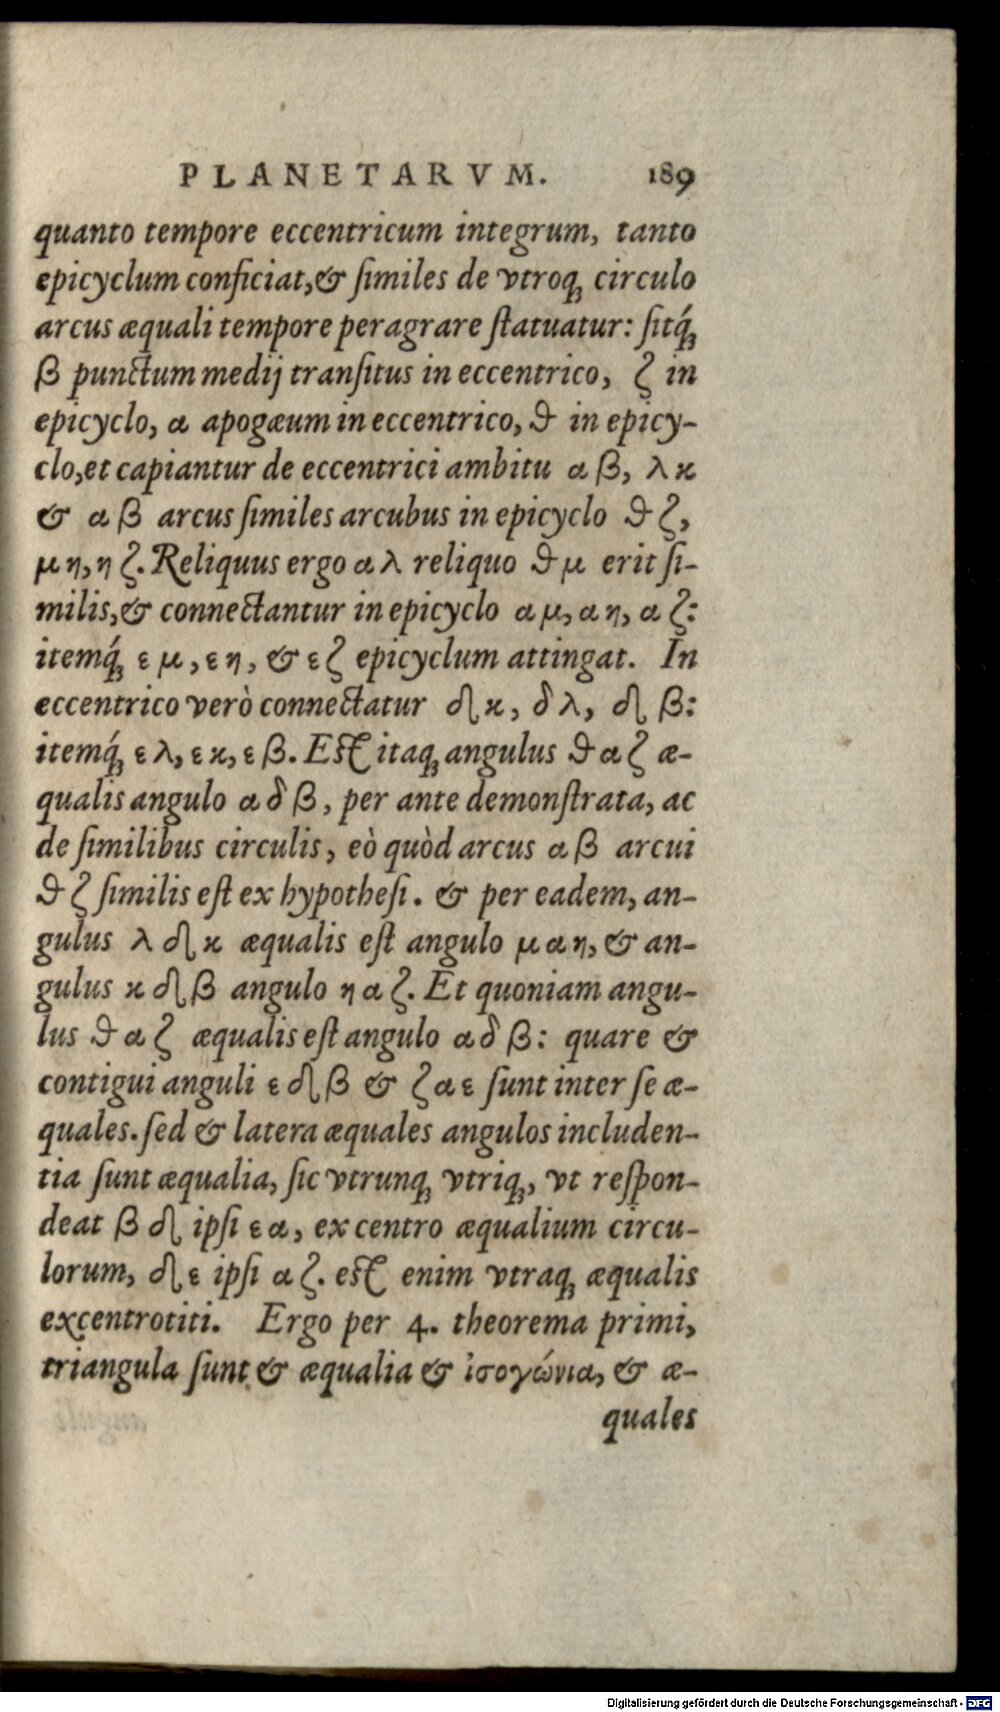 PLANETARVM. 189
quanto tempore eccentricum integrum, tanto
epicyclum conficiat,& ſimiles de vtroq; circulo
arcus æquali tempore peragrare ſtatuatur: ſitq́;
β punctum medij tranſitus in eccentrico, ζ in
epicyclo, α apogæum in eccentrico, ϑ in epicy-
clo,et capiantur de eccentrici ambitu α β, λ κ
& α β arcus ſimiles arcubus in epicyclo ϑ ζ,
μ η, η ζ. Reliquus ergo α λ reliquo ϑ μ erit ſi-
milis,& connectantur in epicyclo α μ, α η, α ζ:
itemq́; ε μ, ε η, & ε ζ epicyclum attingat. In
eccentrico verò connectatur δ κ, δ λ, δ β:
itemq́; ε λ, ε κ, ε β. Eſt itaq; angulus ϑ α ζ æ-
qualis angulo α δ β, per ante demonſtrata, ac
de ſimilibus circulis, eò quòd arcus α β arcui
ϑ ζ ſimilis eſt ex hypotheſi. & per eadem, an-
gulus λ δ κ æqualis eſt angulo μ α η, & an-
gulus κ δ β angulo η α ζ. Et quoniam angu-
lus ϑ α ζ æqualis eſt angulo α δ β: quare &
contigui anguli ε δ β & ζ α ε ſunt inter ſe æ-
quales. ſed & latera æquales angulos includen-
tia ſunt æqualia, ſic vtrunq; vtriq;, vt reſpon-
deat β δ ipſi ε α, ex centro æqualium circu-
lorum, δ ε ipſi α ζ. eſt enim vtraq; æqualis
excentrotiti. Ergo per 4. theorema primi,
triangula ſunt & æqualia & ἰσογώνια, & æ-
quales
Digitalisierung gefördert durch die Deutsche Forschungsgemeinschaft - DFG